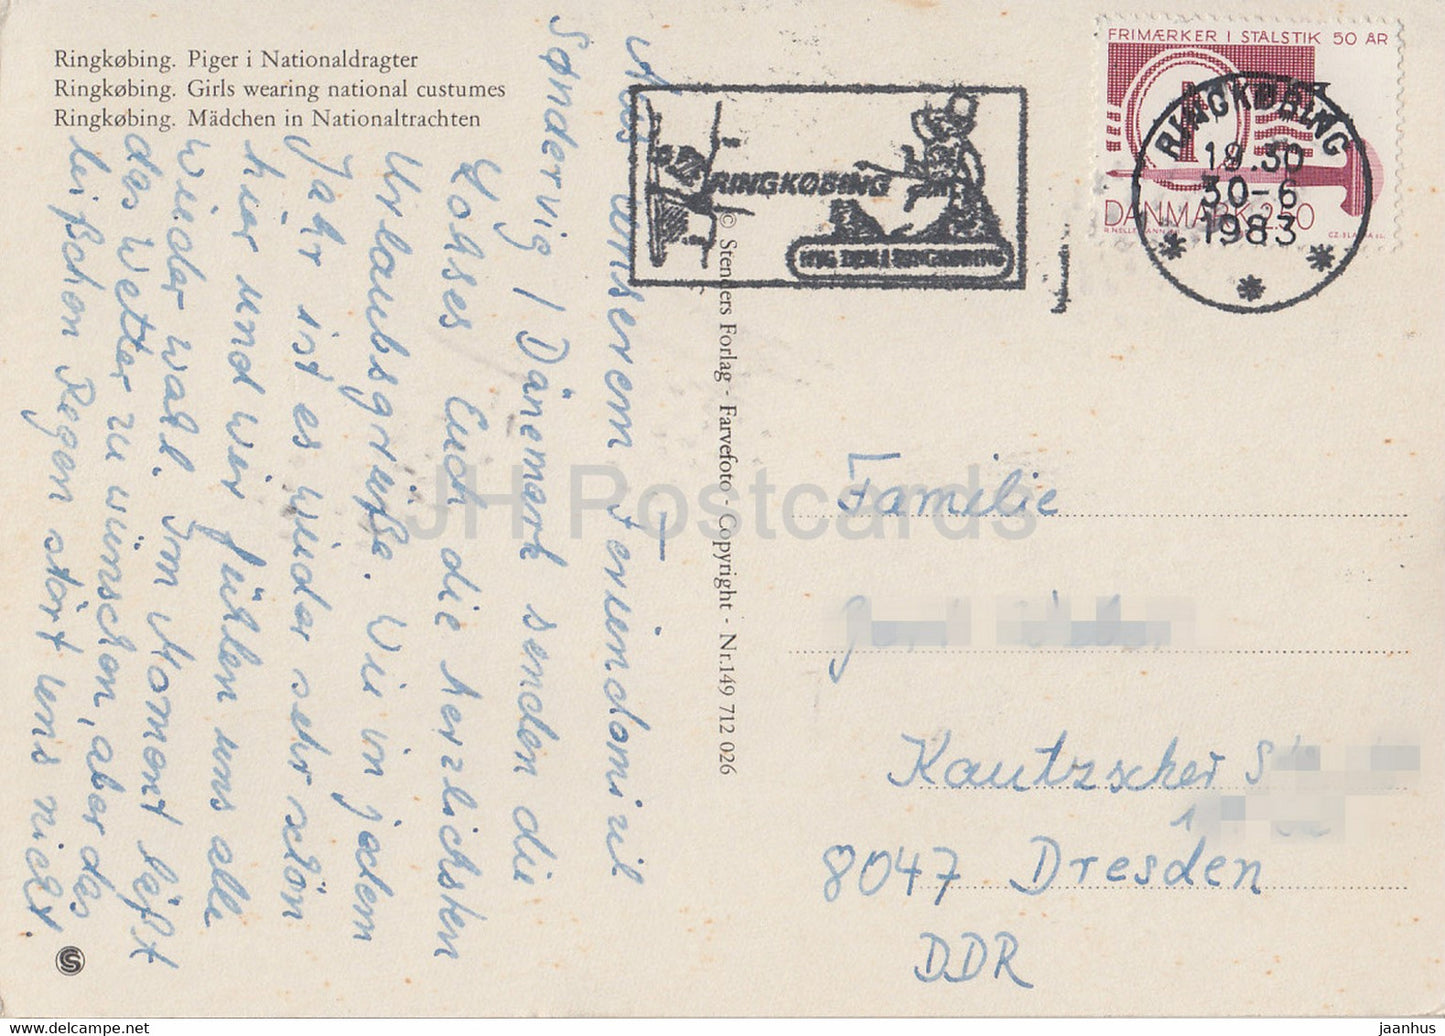 Ringkøbing. Piger i Nationaldragter
Ringkøbing. Girls wearing national custumes
Ringkøbing. Mädchen in Nationaltrachten
Aus unserem Feriendomizil
Søndervig / Dänemark senden die
Kohses Euch die herzlichsten
Urlaubsgrüße. Wie in jedem
Jahr ist es wieder sehr schön
hier und wir fühlen uns alle
wieder wohl. Im Moment läßt
das Wetter zu wünschen, aber das
bißchen Regen stört uns nicht.
© Stenders Forlag - Farvefoto - Copyright - Nr. 149 712 026
RINGKØBING
FRIMÆRKER I STALSTIK 50 ÅR
DANMARK 250
RINGKØBING
19.30
30-6
1983
Familie
Kautzscher
8047 Dresden
DDR
JH Postcards
S
https://www.hippostcard.com
jaanhus